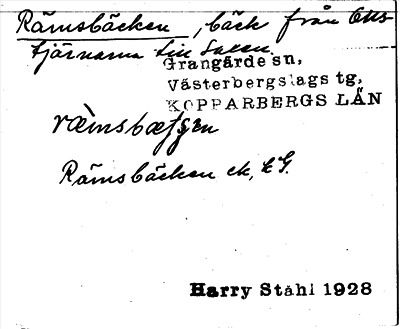 Rämsbäcken, bäck från Ett-
tjärnarna till Saxen.
Grangärde sn,
Västerbergslags tg,
KOPPARBERGS LÄN
Rämsbäcken ek, LG.
Harry Ståhl 1928